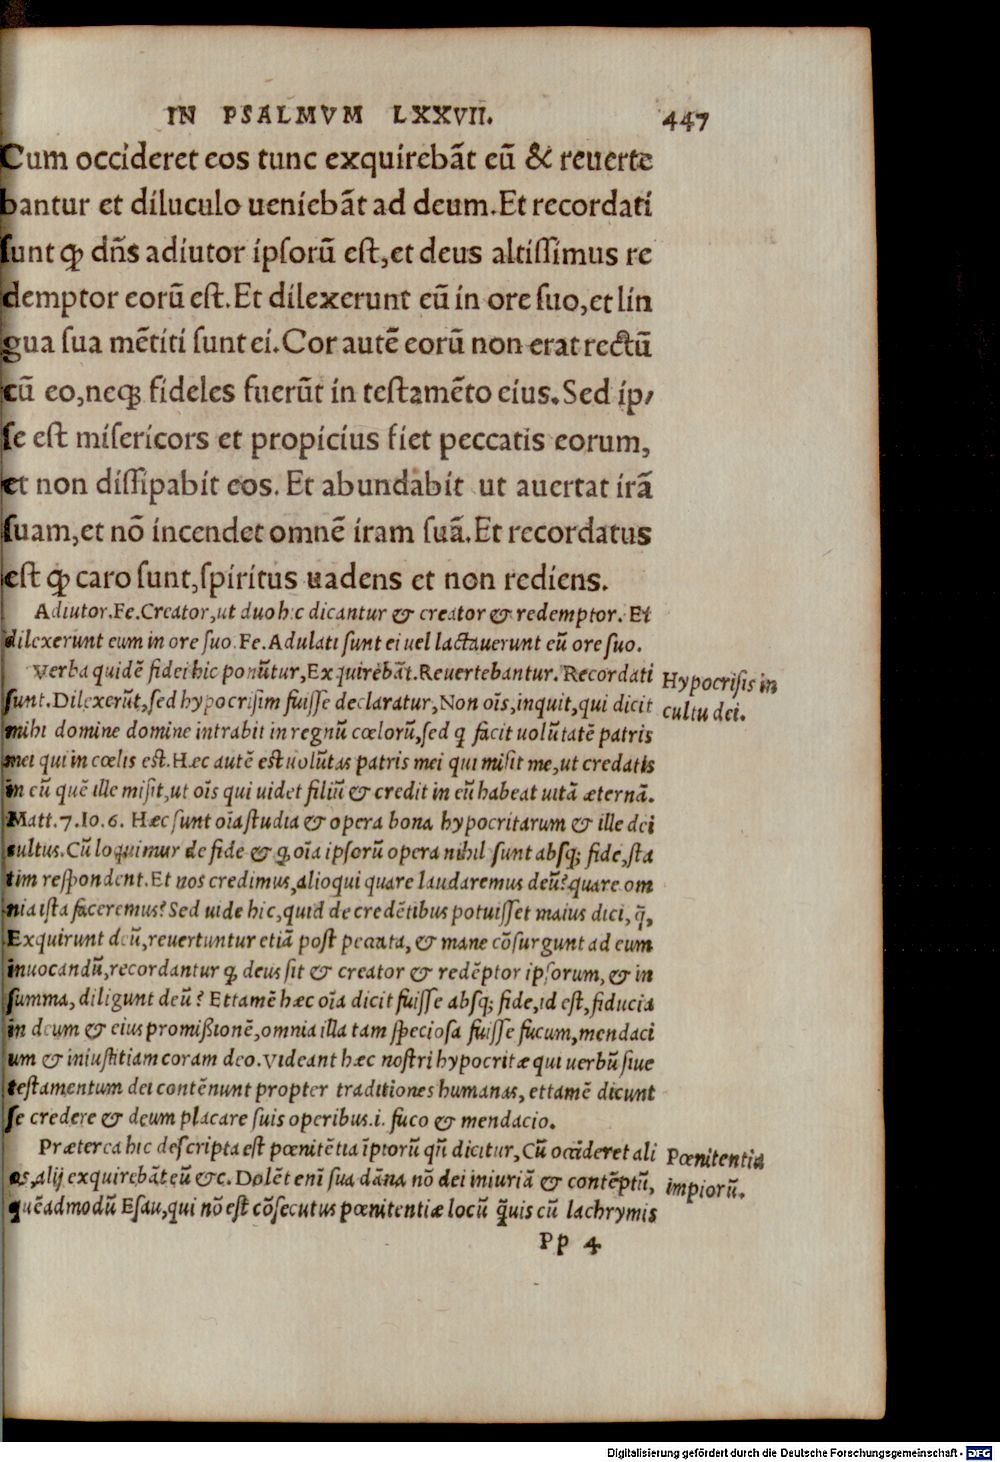 IN PSALMVM LXXVII. 447
Cum occideret eos tunc exquirebāt eū & reuerte
bantur et diluculo ueniebāt ad deum. Et recordati
ſunt ꝙ dñs adiutor ipſorū eſt, et deus altiſſimus re
demptor eorū eſt. Et dilexerunt eū in ore ſuo, et lin
gua ſua mētiti ſunt ei. Cor autē eorū non erat rectū
cū eo, neqꝫ fideles fuerūt in teſtamēto eius. Sed ip/
ſe eſt miſericors et propicius fiet peccatis eorum,
et non diſſipabit eos. Et abundabit ut auertat irā
ſuam, et nō incendet omnē iram ſuā. Et recordatus
eſt ꝙ caro ſunt, ſpiritus uadens et non rediens.
Adiutor. Fe. Creator, ut duo hic dicantur & creator & redemptor. Et
dilexerunt eum in ore ſuo. Fe. Adulati ſunt ei uel lactauerunt eū ore ſuo.
Verba quidē fidei hic ponūtur, Exquirebāt. Reuertebantur. Recordati
ſunt. Dilexerūt, ſed hypocriſim fuiſſe declaratur, Non oīs, inquit, qui dicit
mihi domine domine intrabit in regnū cœlorū, ſed q facit uolūtatē patris
mei qui in cœlis eſt. Hæc autē eſt uolūtas patris mei qui miſit me, ut credatis
in eū quē ille miſit, ut oīs qui uidet filiū & credit in eū habeat uitā æternā.
Matt. 7. Io. 6. Hæc ſunt oīa ſtudia & opera bona hypocritarum & ille dei
cultus. Cū loquimur de fide & ꝙ oīa ipſorū opera nihil ſunt abſqꝫ fide, ſta
tim reſpondent. Et nos credimus, alioqui quare laudaremus deū? quare om
nia iſta faceremus? Sed uide hic, quid de credētibus potuiſſet maius dici, q̄,
Exquirunt deū, reuertuntur etiā poſt peccata, & mane cōſurgunt ad eum
inuocandū, recordantur ꝙ deus ſit & creator & redēptor ipſorum, & in
ſumma, diligunt deū? Et tamē hæc oīa dicit fuiſſe abſqꝫ fide, id eſt, fiducia
in deum & eius promiſsionē, omnia illa tam ſpecioſa fuiſſe fucum, mendaci
um & iniuſtitiam coram deo. Videant hæc noſtri hypocritæ qui uerbū ſiue
teſtamentum dei contēnunt propter traditiones humanas, et tamē dicunt
ſe credere & deum placare ſuis operibus .i. fuco & mendacio.
Præterea hic deſcripta eſt pœnitētia īpiorū qñ dicitur, Cū occideret ali
os, alij exquirebāt eū &c. Dolēt enī ſua dāna nō dei iniuriā & contēptū,
quēadmodū Eſau, qui nō eſt cōſecutus pœnitentiæ locū q̄uis cū lachrymis
Pp 4
Hypocriſis in
cultu dei.
Pœnitentia
impiorū.
Digitalisierung gefördert durch die Deutsche Forschungsgemeinschaft - DFG